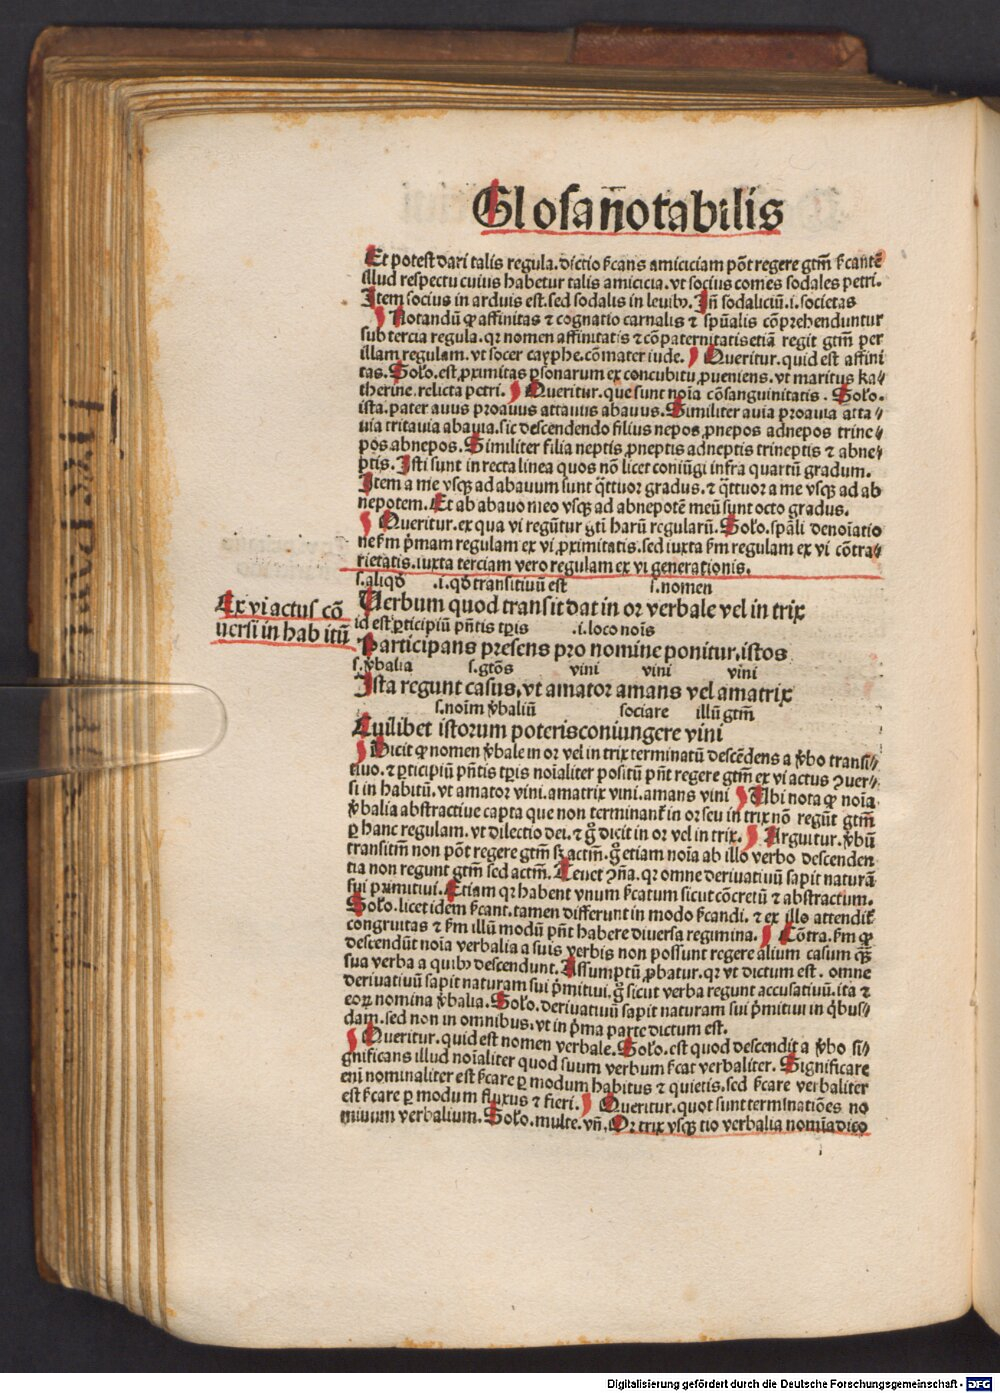 Glosa notabilis
Et potest dari talis regula. dictio ſcans amiciciam pōt regere gtm̄ ſcantē
illud respectu cuius habetur talis amicicia. vt socius comes sodales petri.
Item socius in arduis est. sed sodalis in leuibꝰ. Iñ sodaliciū .i. societas
Notandū ꝙ affinitas ⁊ cognatio carnalis ⁊ spūalis cōprehenduntur
sub tercia regula. qꝛ nomen affinitatis ⁊ cōpaternitatis etiā regit gtm̄ per
illam regulam. vt socer cayphe. cōmater iude. Queritur. quid est affini
tas. Solo. est ꝓximitas ꝑsonarum ex concubitu ꝓueniens. vt maritus ka⸗
therine. relicta petri. Queritur. que sunt noīa cōsanguinitatis. Solo.
ista. pater auus proauus attauus abauus. Similiter auia proauia atta⸗
uia tritauia abauia. sic descendendo filius nepos ꝓnepos adnepos trine⸗
pos abnepos. Similiter filia neptis ꝓneptis adneptis trineptis ⁊ abne⸗
ptis. Isti sunt in recta linea quos nō licet coniūgi infra quartū gradum.
Item a me vsqꝫ ad abauum sunt q̄ttuor gradus. ⁊ q̄ttuor a me vsqꝫ ad ab
nepotem. Et ab abauo meo vsqꝫ ad abnepotē meū sunt octo gradus.
Queritur. ex qua vi regūtur gti harū regularū. Solo. spāli denoīatio
ne ſm p̄mam regulam ex vi ꝓximitatis. sed iuxta ſm regulam ex vi cōtra⸗
rietatis. iuxta terciam vero regulam ex vi generationis.
s. aliqd̄ .i. qd̄ transitiuū est s. nomen
Ex vi actus cō
uersi in habitū
Uerbum quod transit dat in or verbale vel in trix
id est ꝑticipiū pn̄tis tꝑis .i. loco noīs
Participans presens pro nomine ponitur. istos
s. v̄balia s. gtōs vini vini vini
Ista regunt casus. vt amator amans vel amatrix
s. noīm v̄baliū sociare illū gtm̄
Cuilibet istorum poteris coniungere vini
Dicit ꝙ nomen v̄bale in or vel in trix terminatū descēdens a v̄bo transi⸗
tiuo. ⁊ ꝑticipiū pn̄tis tꝑis noīaliter positū pn̄t regere gtm̄ ex vi actus ꝯuer⸗
si in habitū. vt amator vini. amatrix vini. amans vini Ubi nota ꝙ noīa
v̄balia abstractiue capta que non terminant̄ in or seu in trix nō regūt gtm̄
ꝑ hanc regulam. vt dilectio dei. ⁊ gͦ dicit in or vel in trix. Arguitur. v̄bū
transitm̄ non pōt regere gtm̄ sꝫ actm̄. gͦ etiam noīa ab illo verbo descenden
tia non regunt gtm̄ sed actm̄. Tenet ꝯn̄a. qꝛ omne deriuatiuū sapit naturā
sui pͥmitiui. Etiam qꝛ habent vnum ſcatum sicut cōcretū ⁊ abstractum.
Solo. licet idem ſcant. tamen differunt in modo ſcandi. ⁊ ex illo attendit̄
congruitas ⁊ ſm illū modū pn̄t habere diuersa regimina. Cōtra. ſm ꝙ
descendūt noīa verbalia a suis verbis non possunt regere alium casum q̄ꝫ
sua verba a quibꝰ descendunt. Assumptū ꝓbatur. qꝛ vt dictum est. omne
deriuatiuū sapit naturam sui pͥmitiui. gͦ sicut verba regunt accusatiuū. ita ⁊
eoꝝ nomina v̄balia. Solo. deriuatiuū sapit naturam sui pͥmitiui in q̄bus⸗
dam. sed non in omnibus. vt in pͥma parte dictum est.
Queritur. quid est nomen verbale. Solo. est quod descendit a v̄bo si⸗
gnificans illud noīaliter quod suum verbum ſcat verbaliter. Significare
em̄ nominaliter est ſcare ꝑ modum habitus ⁊ quietis. sed ſcare verbaliter
est ſcare ꝑ modum fluxus ⁊ fieri. Queritur. quot sunt terminatiōes no
minum verbalium. Solo. multe. vn̄. Or trix vsqꝫ tio verbalia nomina dico
Digitalisierung gefördert durch die Deutsche Forschungsgemeinschaft - DFG